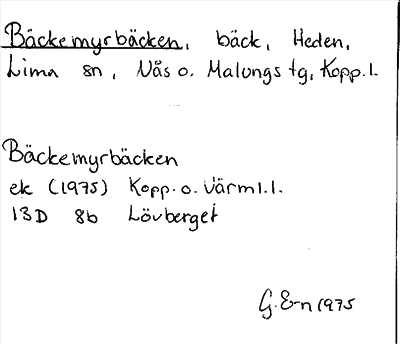 Bäckemyrbäcken, bäck, Heden,
Lima sn, Nås o. Malungs tg, Kopp.l.
Bäckemyrbäcken
ek (1975) Kopp. o. Värml.l.
13D 8b Lövberget
G. E-n 1975